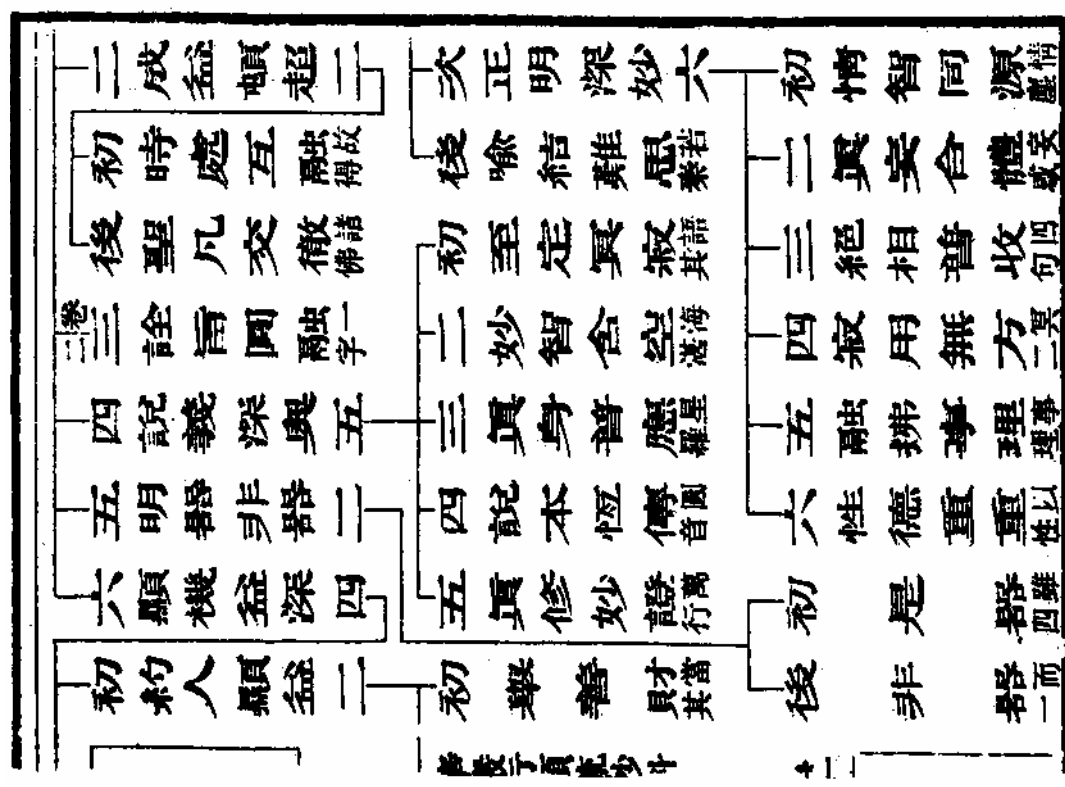 二成益頓超二
初時處互融故得
後聖凡交徹諸佛
三詮旨圓融一字
四說義深奧五
五明器非器二
六顯機益深四
初約人顯益二
次正明深妙六
後喻結難思若秦
初至定冥寂語其
二妙智含空海湛
三眞身普應星羅
四說本恆傳圓音
五眞修妙證萬行
初舉善財當其
初情智同源情塵
二眞妄合體妄惑
三絕相普收四句
四寂用無方冥二
五融拂事理事理
六性德重重以性
初是器雖四
後非器而一